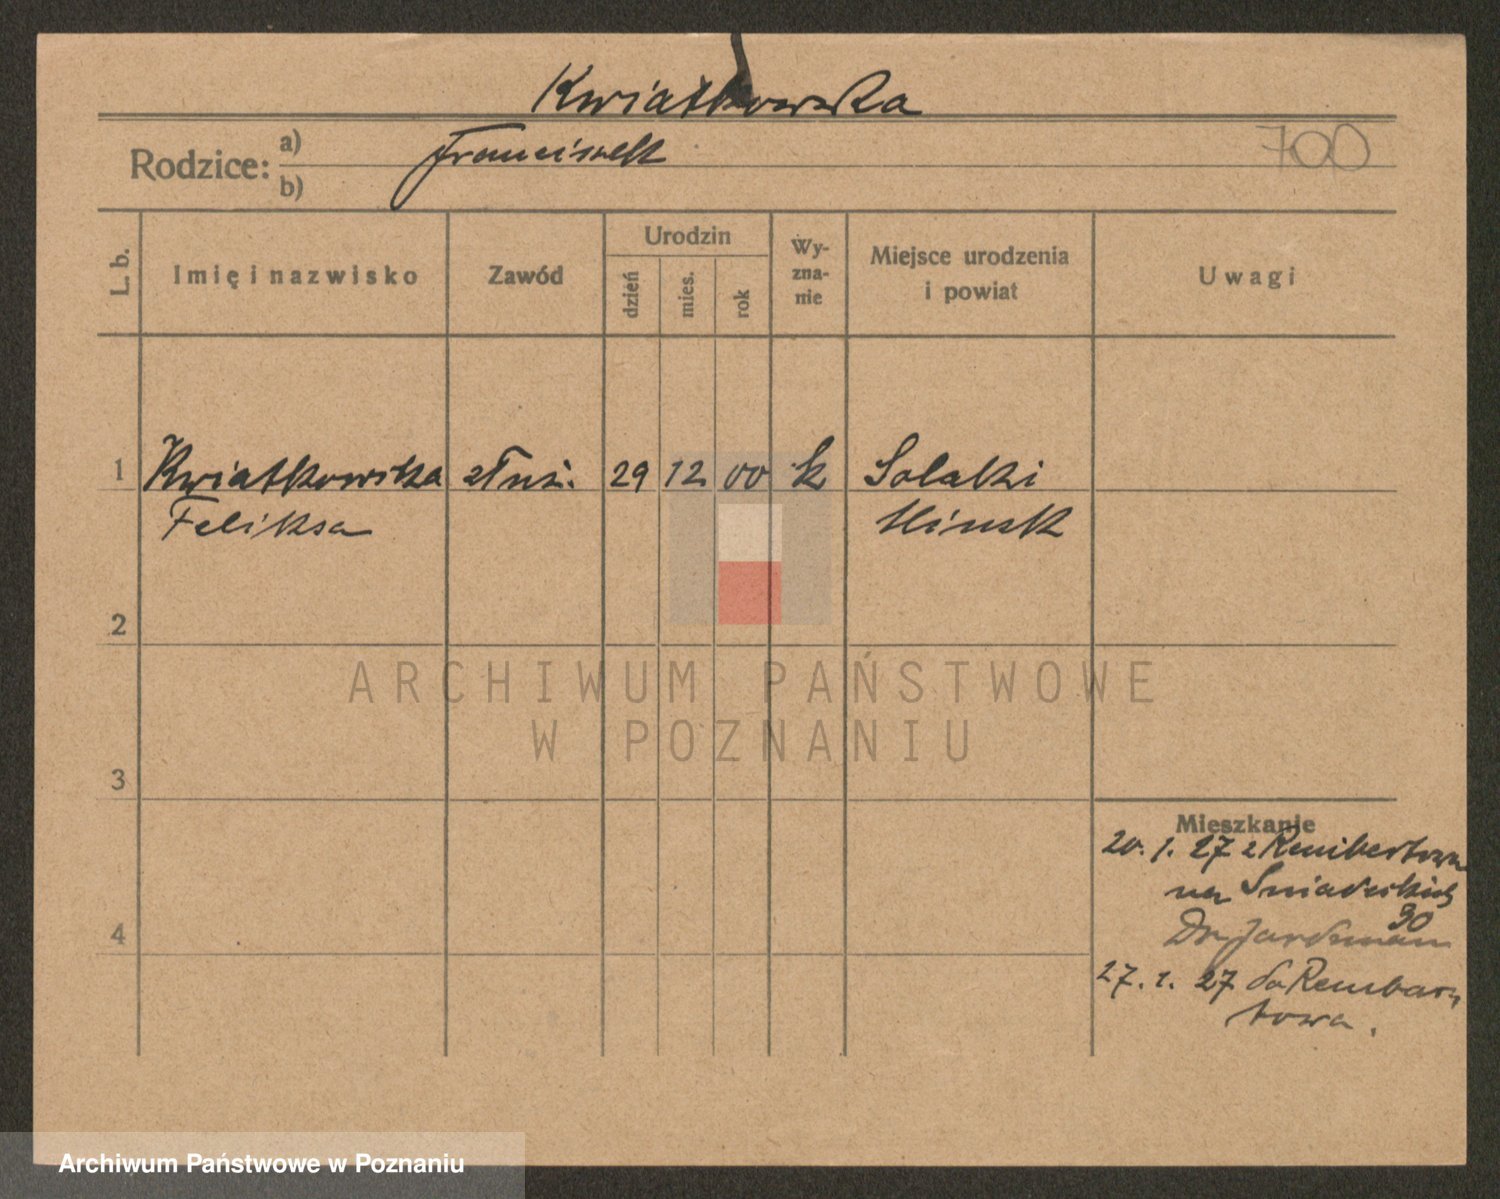 Kwiatkowska
Rodzice:
a) Franciszek
b)
700
L. b.
Imię i nazwisko
Zawód
Urodzin
dzień
mies.
rok
Wy-
zna-
nie
Miejsce urodzenia
i powiat
Uwagi
1 Kwiatkowska służ. 29 12 00 k Solaki
Feliksa Mińsk
2
3
4
Mieszkanie
20. 1. 27 z Rembertowa
na Śniadeckich
30
Dr
27. 1. 27 do Rember
towa.
ARCHIWUM PAŃSTWOWE
W POZNANIU
Archiwum Państwowe w Poznaniu